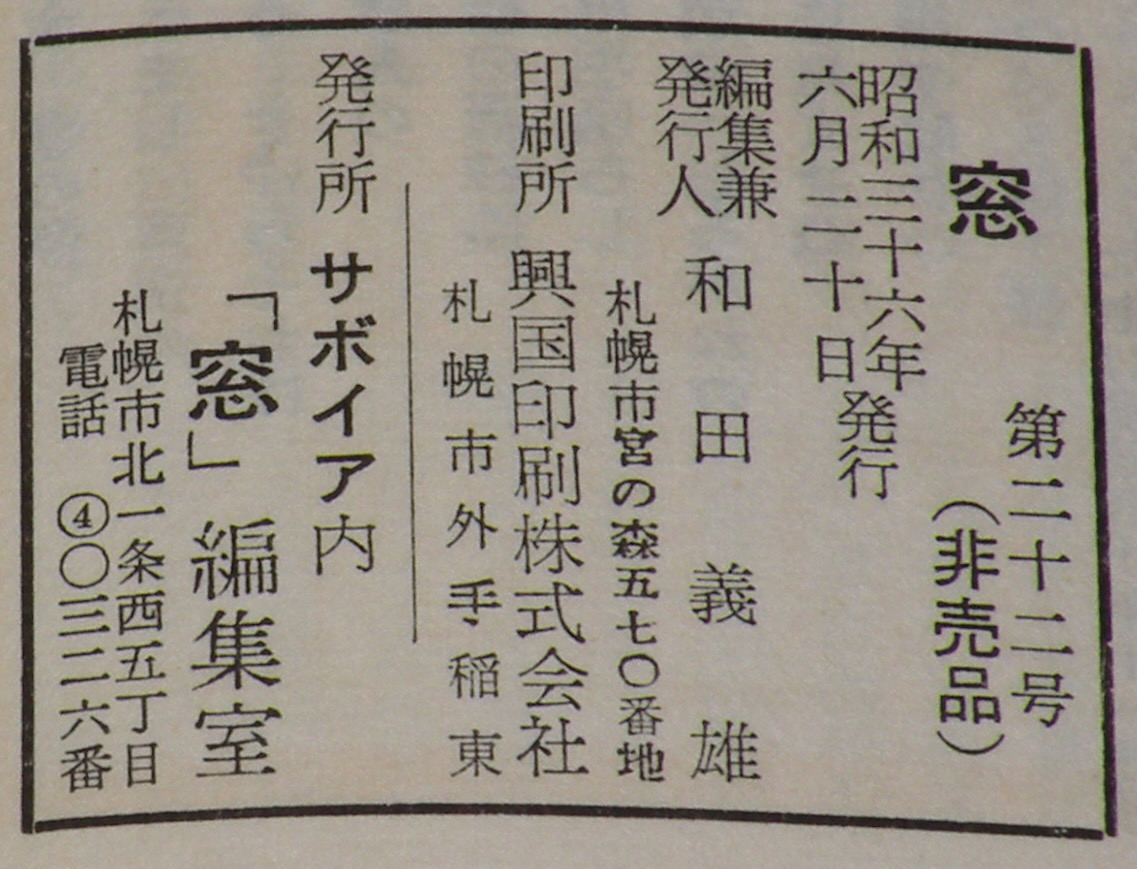 窓
第二十二号
（非売品）
昭和三十六年
六月二十日
発行
編集兼
発行人
和田義雄
札幌市宮の森五七〇番地
印刷所 興国印刷株式会社
札幌市外手稲東
発行所 サボイア内
「窓」編集室
札幌市北一条西五丁目
電話 ④〇三二六番